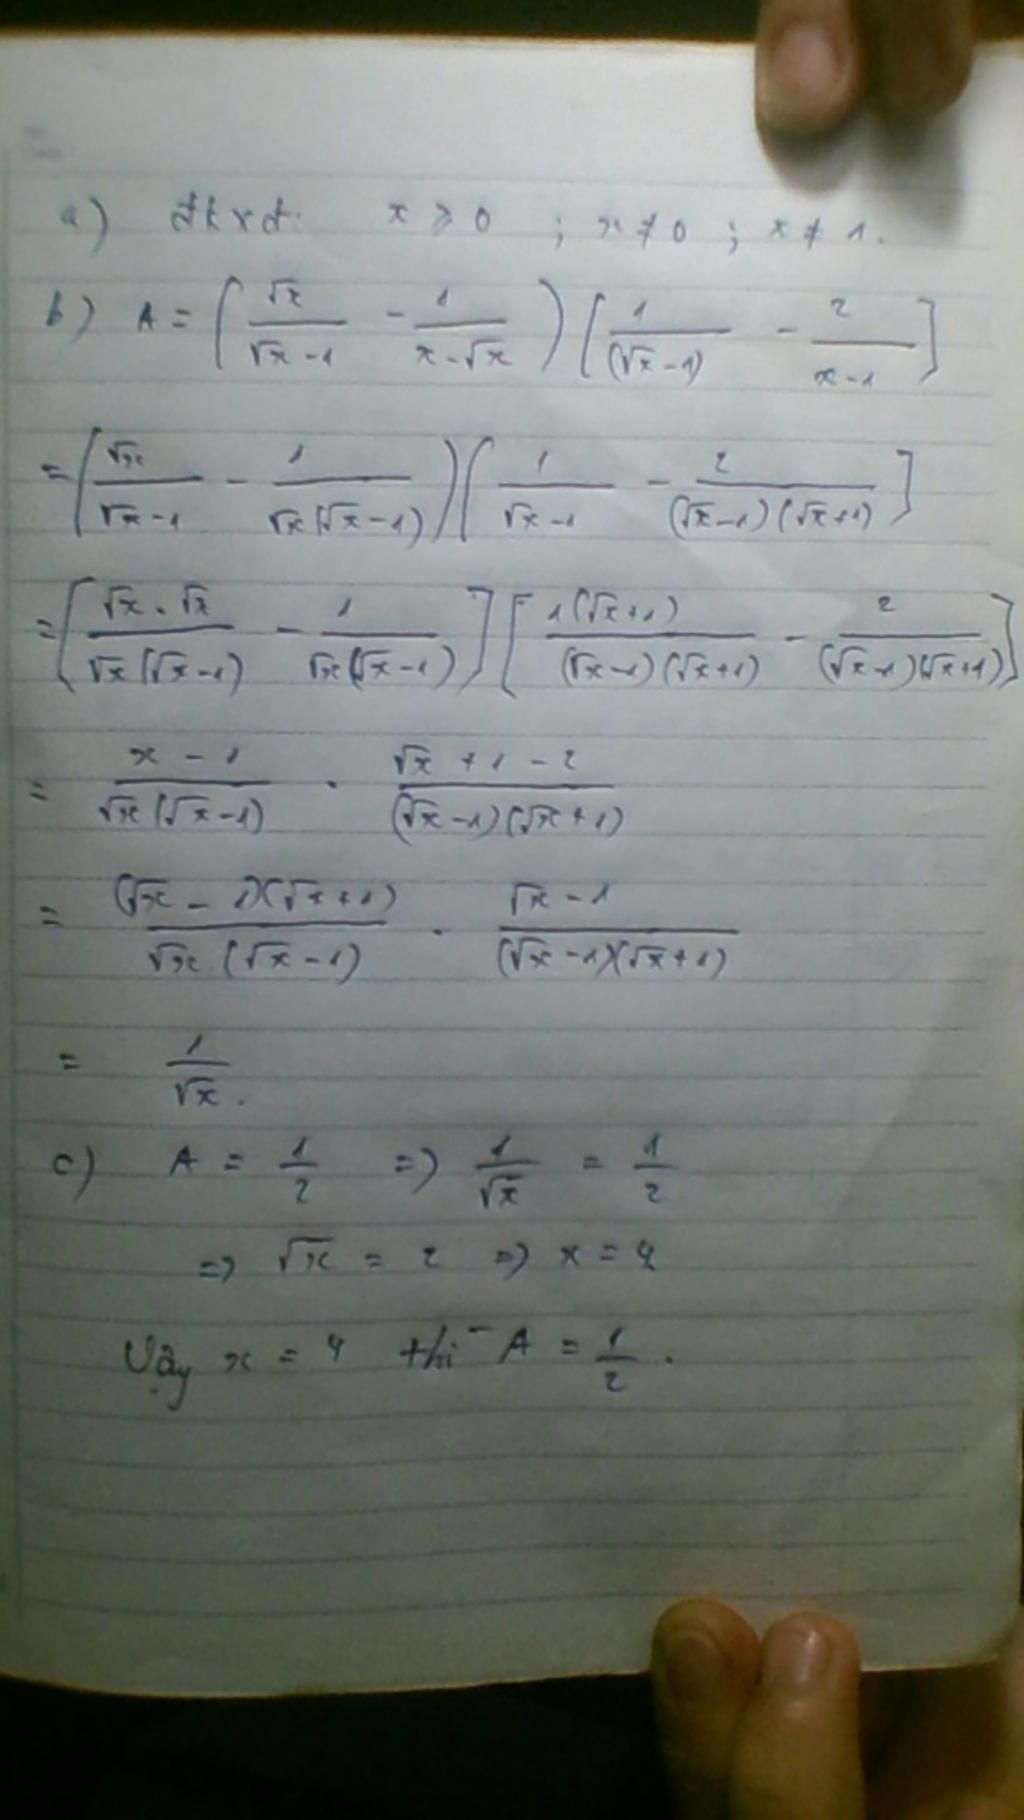 a) đkxđ: x ≥ 0 ; x ≠ 0 ; x ≠ 1.
b) A = (√x/(√x - 1) - 1/(x - √x)) [1/(√x - 1) - 2/(x - 1)]
= (√x/(√x - 1) - 1/(√x(√x - 1))) (1/(√x - 1) - 2/((√x - 1)(√x + 1))]
= [√x . √x/(√x(√x - 1)) - 1/(√x(√x - 1))] [1(√x + 1)/((√x - 1)(√x + 1)) - 2/((√x - 1)(√x + 1))]
= (x - 1)/(√x(√x - 1)) . (√x + 1 - 2)/((√x - 1)(√x + 1))
= (√x - 1)(√x + 1)/(√x(√x - 1)) . (√x - 1)/((√x - 1)(√x + 1))
= 1/√x .
c) A = 1/2 => 1/√x = 1/2
=> √x = 2 => x = 4
Vậy x = 4 thì A = 1/2 .